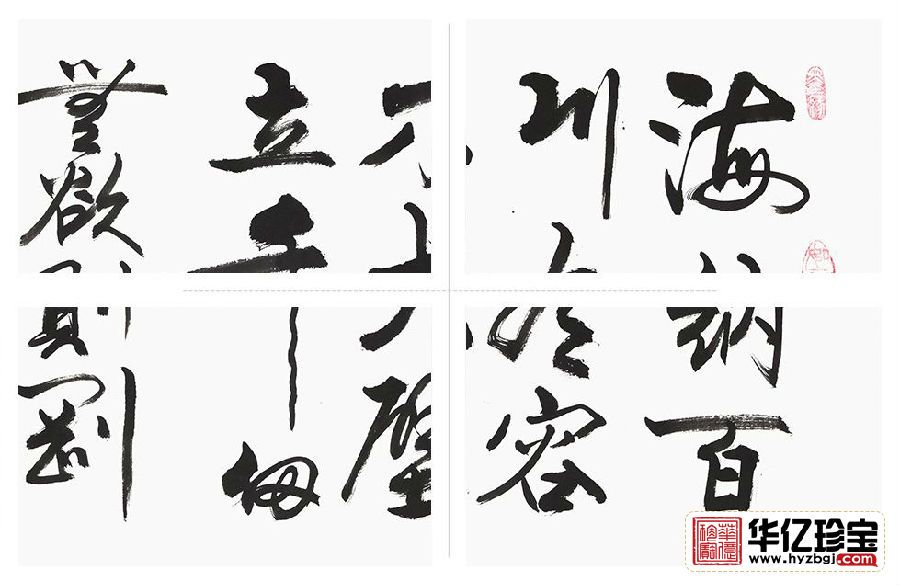 海納百
川有容
乃大壁
立千仞
無欲則剛
华亿珍宝
www.hyzbgj.com